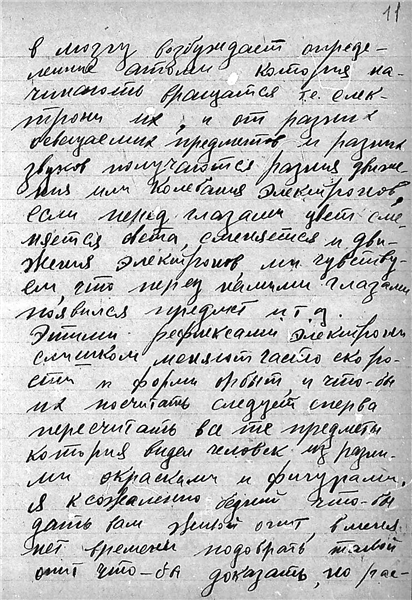 11
в мозгу возбуждает опреде-
ление атоми котория на-
чинають вращатся т.е. елек-
трони их, и от разних
освещаемих предметов и разних
звуков получаются разния движе
ния или колебания электронов,
если перед глазами цвет сме
няется света, сменяется и дви-
жения электронов, ми чувству-
ем, что перед нашими глазами
появился предмет и т.д.
Этими рефлексами электрони
слишком меняют часто скоро-
сти и форми орбит, и что-бы
их посчитать следует сперва
пересчитать все те предмети
котория видел человек из разни-
ми окрасками и фигурами,
я к сожалению бедний что-бы
дать вам живой опит, в меня
нет времени подобрать такой
опит что-бы доказать, но рас-